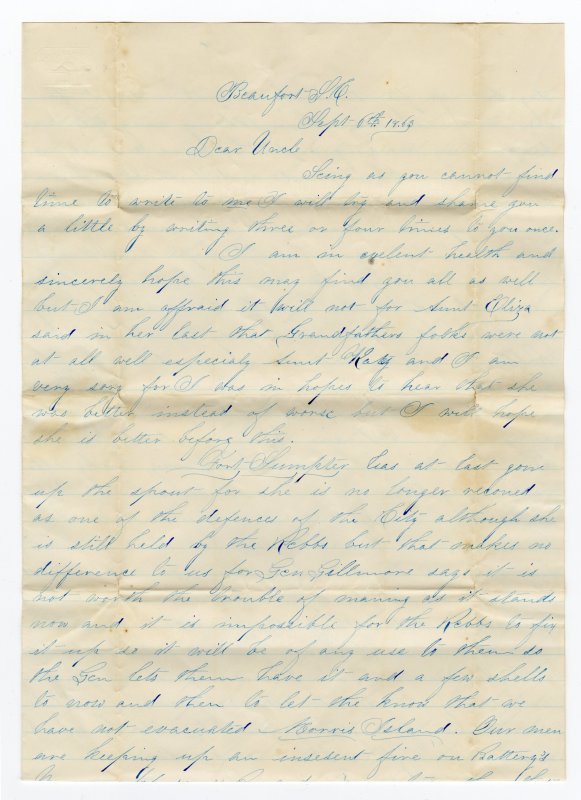 Beaufort S.C.
Sept 6th 1863
Dear Uncle
Seing as you cannot find
time to write to me I will try and shame you
a little by writing three or four times to you once.
I am in exelent health and
sincerely hope this may find you all as well
but I am affraid it will not for Aunt Eliza
said in her last that Grandfathers folks were not
at all well especialy Aunt Katy and I am
very sory for I was in hopes to hear that she
was better instead of worse but I will hope
she is better before this.
Fort Sumpter has at last gone
up the spout for she is no longer reconed
as one of the defences of the City although she
is still held by the Rebbs but that makes no
difference to us for Gen Gillmore says it is
not worth the trouble of maning as it stands
now and it is impossible for the Rebbs to fix
it up so it will be of any use to them so
the Gen lets them have it and a few shells
to now and then to let the know that we
have not evacuated Morris Island. Our men
are keeping up an insesent fire on Battery's